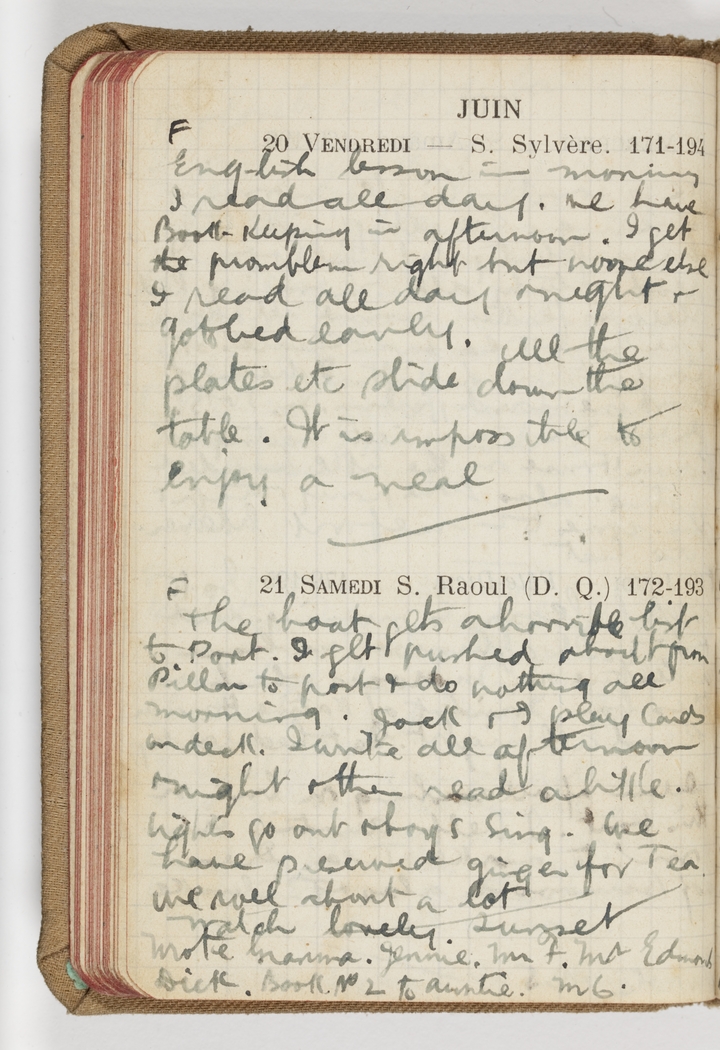 JUIN
F
20 VENDREDI — S. Sylvère. 171-194
English lesson in morning
I read all day. We have
Book-Keeping in afternoon. I get
the promblem right but noone else
I read all day & night &
got bed early. All the
plates etc slide down the
table. It is impossible to
enjoy a meal
F
21 SAMEDI S. Raoul (D. Q.) 172-193
The boat gets a horrible list
to Port. I get pushed about from
Pillar to post & do nothing all
morning. Jack & I play Cards
on deck. I write all afternoon
& night & then read a little.
Lights go out & boys sing. We
have preserved ginger for Tea.
We roll about a lot
Watch lovely sunset
Wrote Mamma. Jennie. Mr F. Mr Edmonds
Dick. Book No 2 to auntie.